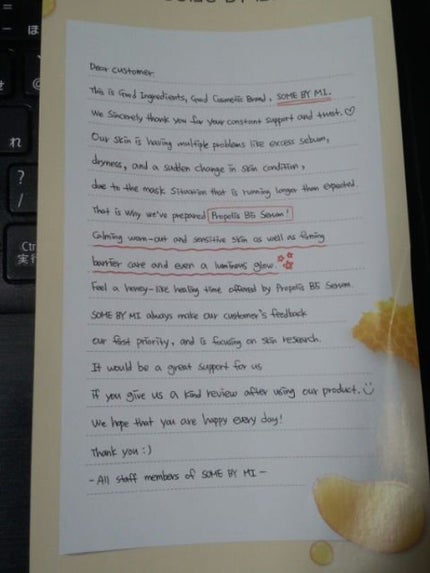 Dear customer.
This is Good Ingredients, Good Cosmetic Brand, SOME BY MI.
We sincerely thank you for your constant support and trust.♡
Our skin is having multiple problems like excess sebum,
dryness, and a sudden change in skin condition,
due to the mask situation that is running longer than expected.
That is why we've prepared Propolis B5 Serum!
Calming worn-out and sensitive skin as well as firming
barrier care and even a luminous glow.
Feel a honey-like healing time offered by Propolis B5 Serum.
SOME BY MI always make our customer's feedback
our first priority, and is focusing on skin research.
It would be a great support for us
if you give us a kind review after using our product.
We hope that you are happy every day!
Thank you :)
- All staff members of SOME BY MI -
ほ
れ
?
/
Ctrl
実行